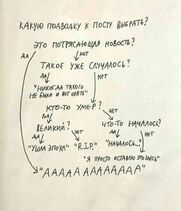 КАКУЮ ПОДВОДКУ К ПОСТУ ВЫБРАТЬ?
ЭТО ПОТРЯСАЮЩАЯ НОВОСТЬ?
ДА НЕТ
ТАКОЕ УЖЕ СЛУЧАЛОСЬ?
ДА НЕТ
"НИКОГДА ТАКОГО
НЕ БЫЛО И ВОТ ОПЯТЬ"
КТО-ТО УМЕР?
ДА НЕТ
ВЕЛИКИЙ? ЧТО-ТО НАЧАЛОСЬ?
ДА НЕТ ДА НЕТ
"УШЛА ЭПОХА" "R.I.P." "НАЧАЛОСЬ..."
"Я ПРОСТО ОСТАВЛЮ ЭТО ЗДЕСЬ"
"АААААААААААААА"